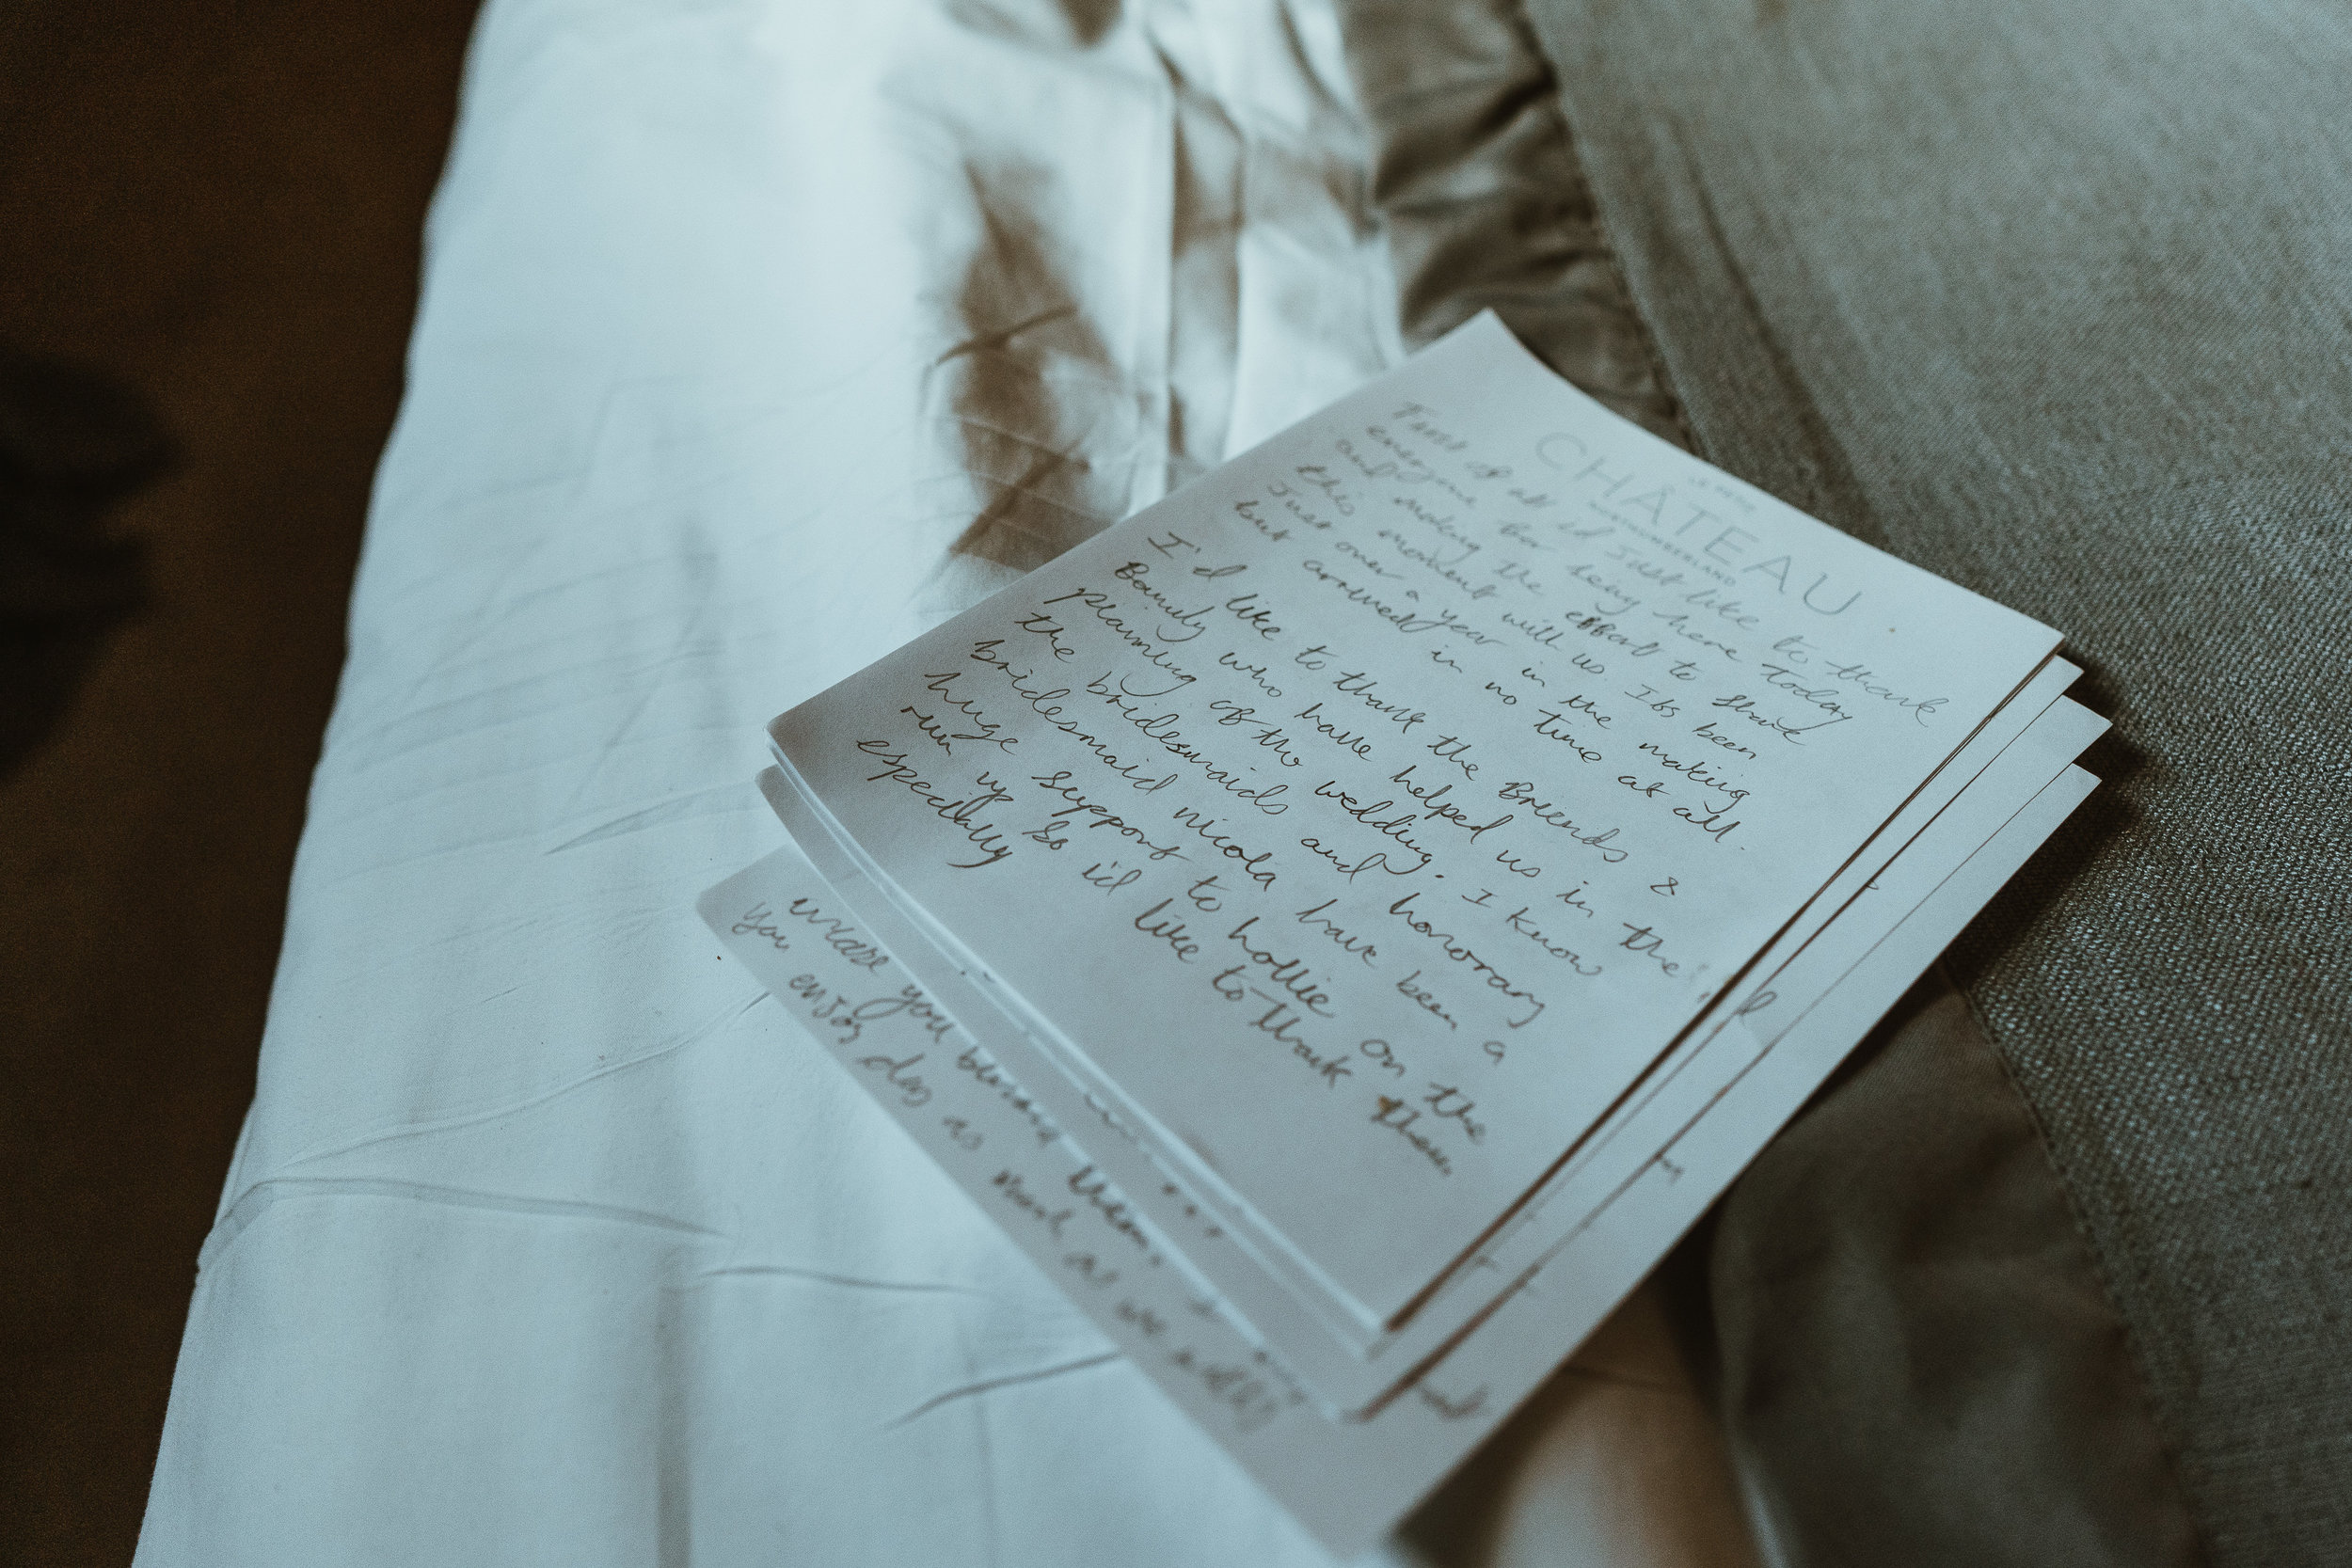 CHÂTEAU
NORTHUMBERLAND
First of all id Just like to thank
everyone for being here today
and making the effort to share
this moment with us Its been
Just over a year in the making
but arrived in no time at all.
I'd like to thank the friends &
family who have helped us in the
planning of the wedding. I know
the bridesmaids and honorary
bridesmaid nicola have been a
huge support to hollie on the
run up so i'd like to thank them
especially
you behind them.
you enjoy day as much as we will